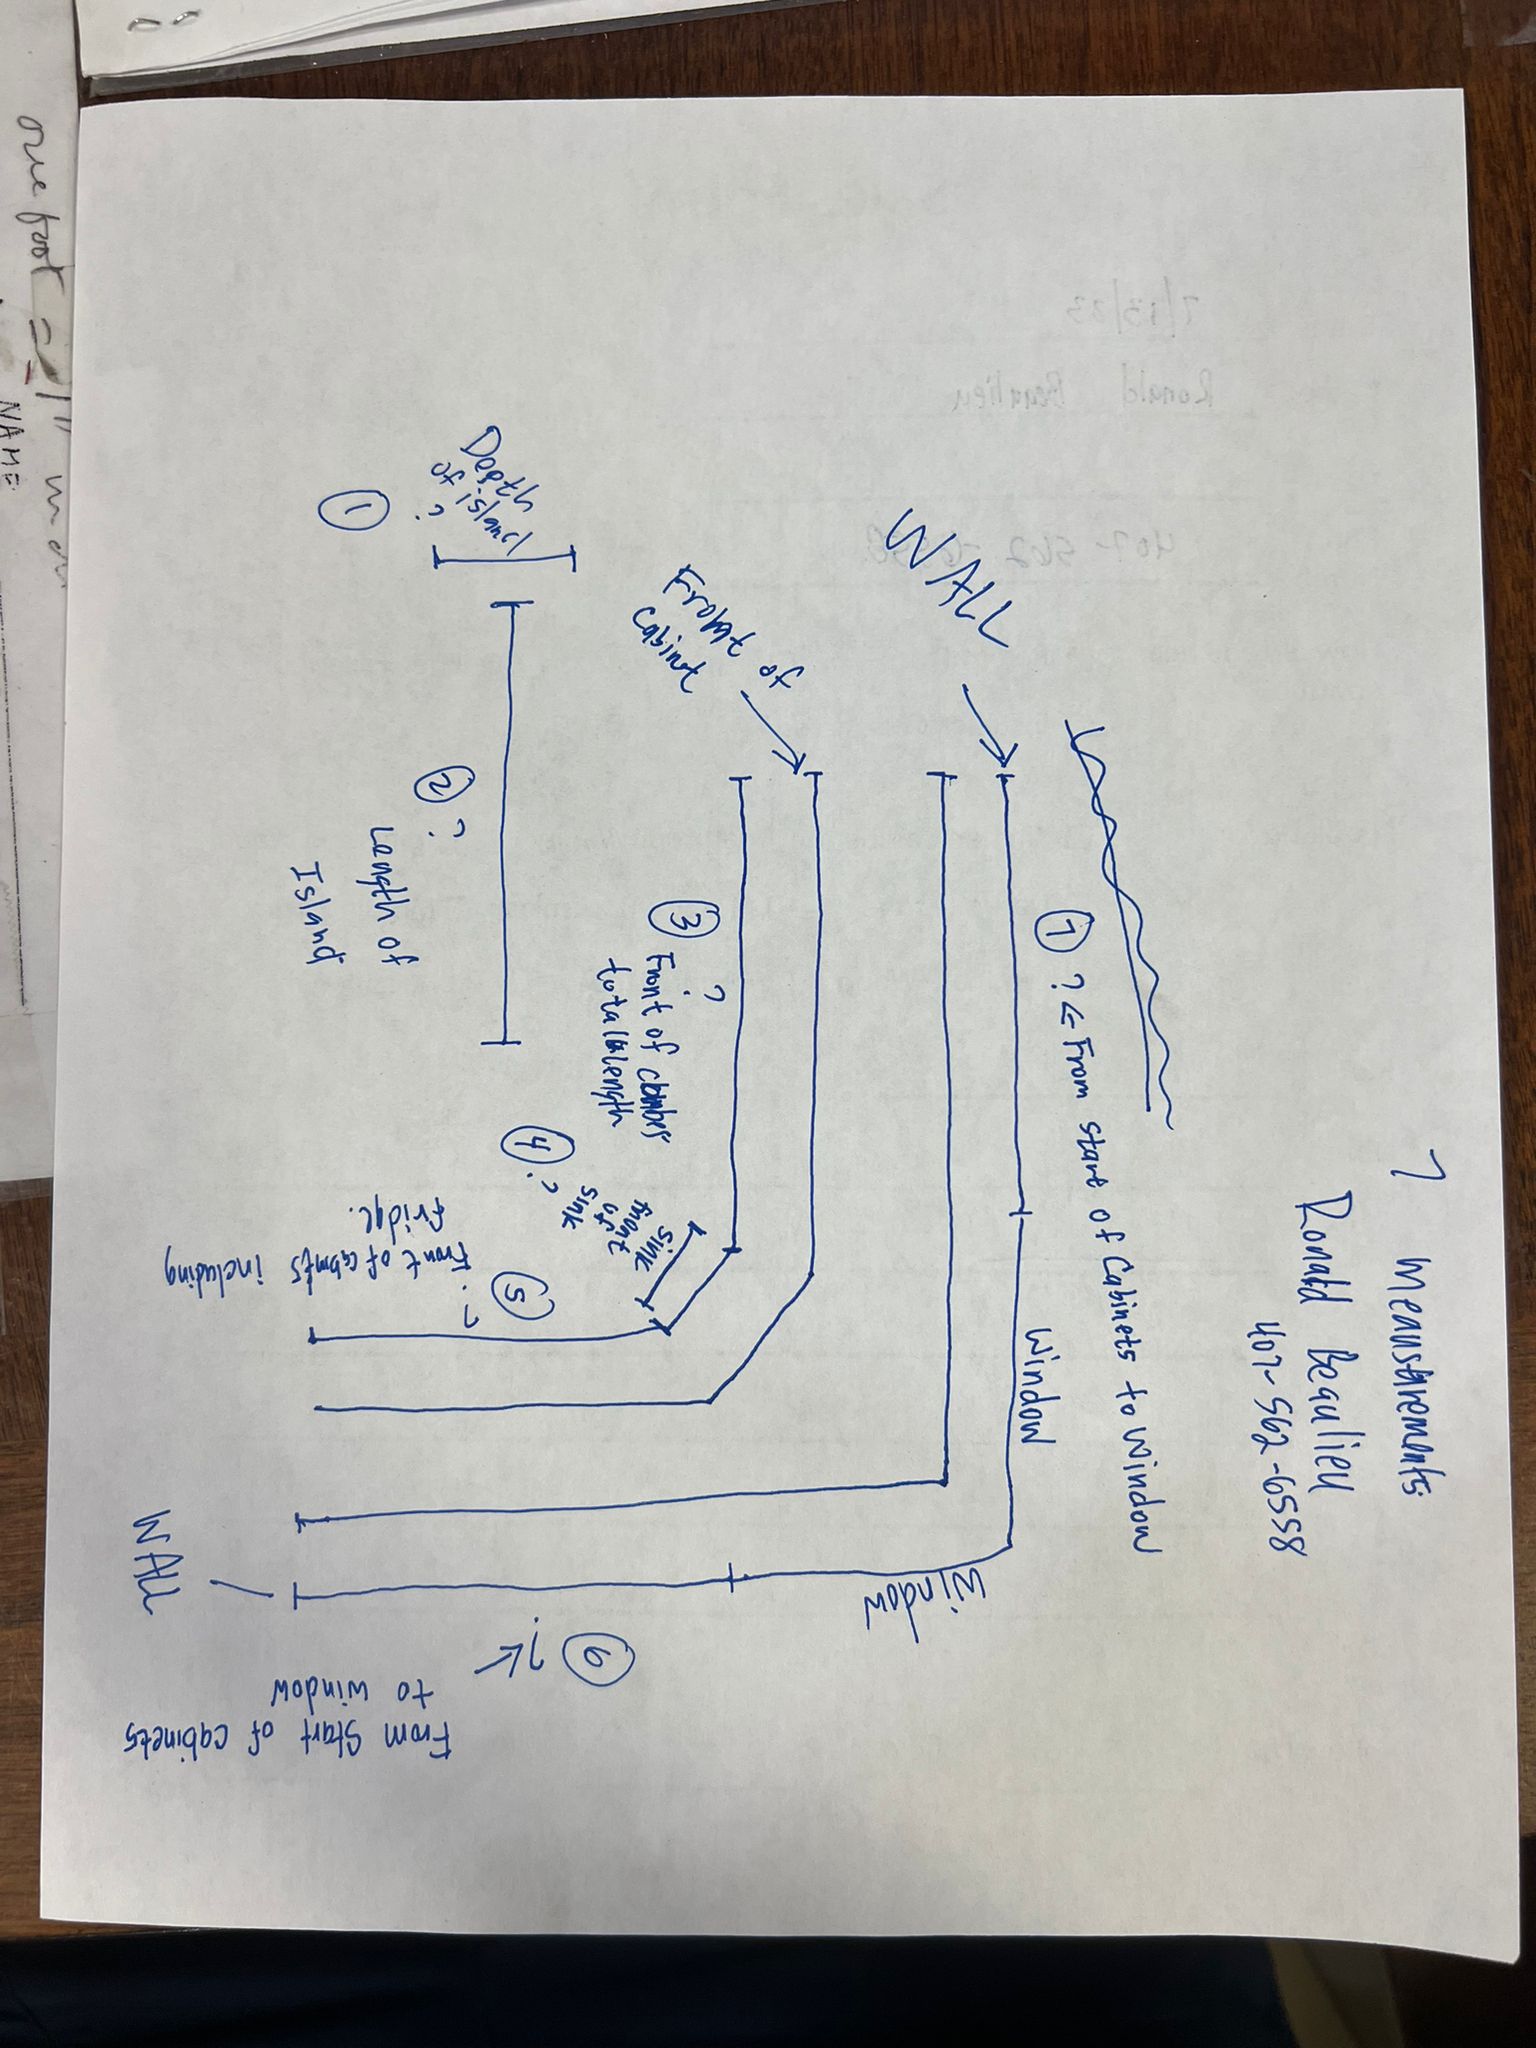 7 Measurements
Ronald Beaulieu
407-562-6558
7 ? ← From start of Cabinets to window
WALL
Window
Window
Front of
Cabinet
Depth
of island
?
1
2 ?
Length of
Island
3 ?
Front of
total length
4 ?
Sink
front
of
Sink
5
?
Front of cabnts including
fridge.
6
? ←
From Start of cabinets
to window
WALL
one foot = 1"
NAME
7/13/23
Ronald Beaulieu